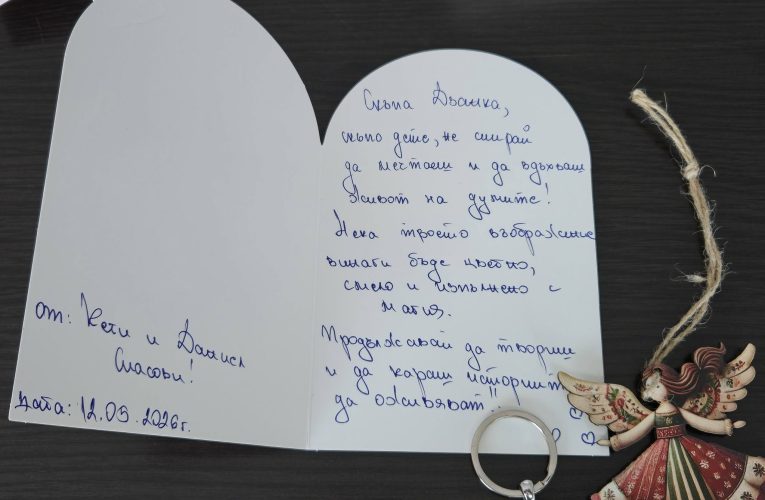 от: Кети и Даниел
Спасови!
Дата: 12.05.2026г.
Скъпа Дванка,
скъпо дете, не спирай
да мечтаеш и да вдъхваш
живот на думите!
Нека твоето въображение
винаги бъде цветно,
смело и изпълнено с
магия.
Продължавай да твориш
и да караш историите
да оживяват!!